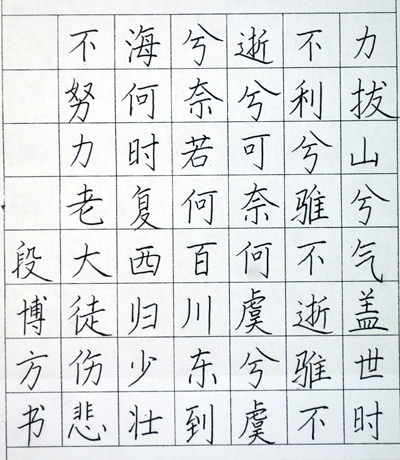 力拔山兮气盖世时
不利兮骓不逝骓不
逝兮可奈何虞兮虞
兮奈若何百川东到
海何时复西归少壮
不努力老大徒伤悲
段博方书